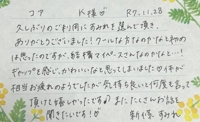 コア K様♡ R7.11.28
久しぶりのご利用にすみれを選んで頂き、
ありがとうございました！クールな方なのかなとやわめ
は思ったのですが、結構マイペースさんなのかなと…！
ギャップを感じ、かわいいなと思ってしまいました♡イキが
相当お疲れのようでしたが気持ち良いと何度も言って
頂けて嬉しかったです またたくさんお話を
聞きたいです！が 新人 すみれ